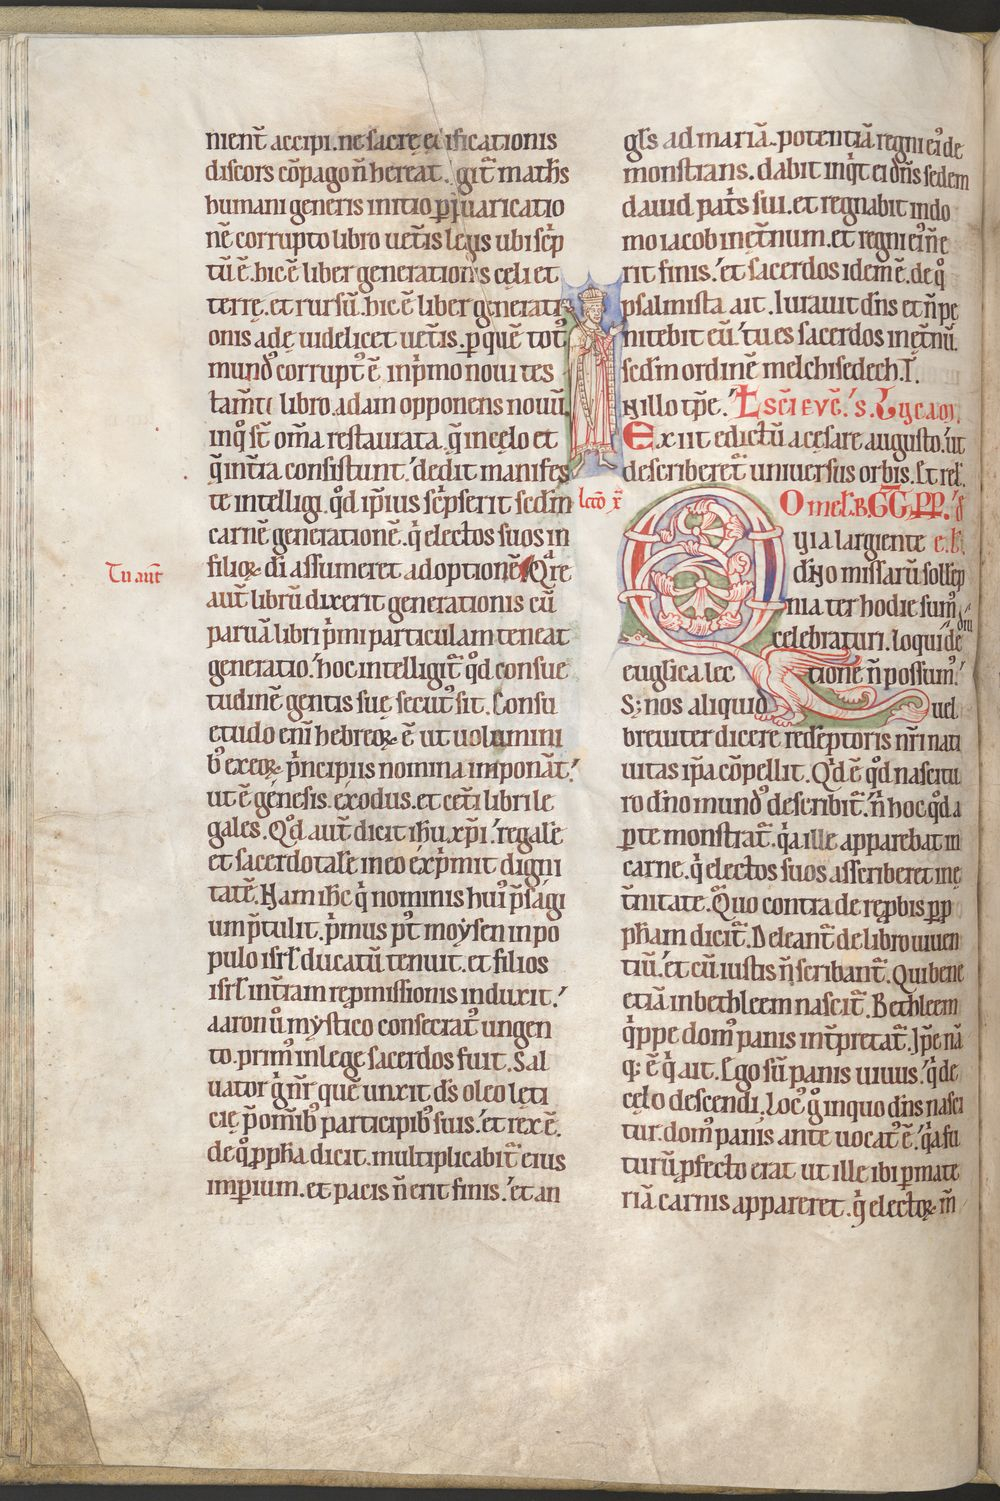 nient̄ accipi. ne sacrę edificationis
discors cōpago n̄ hereat. git̄ matħs
humani generis initio p̱uaricatio
nē corrupto libro uet̄is legis ubi sc̄p
tū ē. hic ē liber generationis cęli et
terrę. et rursū. hic ē liber generati
onis adę uidelicet uet̄is. p̱ quē tot᷒
mund᷒ corrupt᷒ ē inp̄mo noui tes
tam̄ti libro. adam opponens nouū
inq᷒ sт̄ om̄a restaurata. q̄ in cęlo et
q̄ int̄ra consistunt. dedit manifes
te intelligi. qd̄ ip̄ius sc̄pserit sedm̄
carnē generationē. q̇ electos suos in
Tu aut̄
filioꝝ di assumeret adoptionē. Qͣre
aut̄ librū dixerit generationis cū
paruā libri ṗmi particulam teneat
generatio. hoc intelligit̄ qd̄ consue
tudinē gentis suę secut᷒ sit. Consu
etudo eni hebreoꝝ ē ut uolumini
b᷒ ex eoꝝ ṗncipiis nomina imponāt.
ut ē genesis. exodus. et cet̄i libri le
gales. Qd̄ aut̄ dicit ihu xp̄i regale
et sacerdotale in eo exṗmit digni
tatē. Nam ih̄c q̇ nominis hui᷒ p̄sagi
um p̄tulit. ṗmus p᷒t moysen in po
pulo isrl̄ ducatū tenuit. et filios
isrl̄ int̄ram rep̱missionis induxit.
aaron ů mystico consecrat᷒ ungen
to. prim᷒ in lege sacerdos fuit. Sal
uator q̇ nr̄ quē unxit ds̄ oleo lęti
cię p̄ om̄ib᷒ participib᷒ suis. et rex ē.
de q᷒ p̱ph̄a dicit. multiplicabit̄ eius
imperium. et pacis n̄ erit finis. et an
gl̄s ad mariā. potentiā regni ei᷒ de
monstrans. dabit inqͥt ei dn̄s sedem
dauid pat̄s sui. et regnabit in do
mo iacob in ęt̄num. et regni ei᷒ n̄ e
rit finis. et sacerdos idem ē. de q᷒
psalmista ait. Iurauit dn̄s et n̄ pe
nitebit eū. tu es sacerdos in ęt̄nū.
scdm̄ ordinē melchisedech. I.
N illo tp̄e. L sc̄i evḡ. s. Lycam.
Exiit edictū a cęsare augusto. ut
describeret̄ uniuersus orbis. Et rel̄.
lectō x̄
Omel̄. B. GG. PP. d
Q yia largiente e. l
dn̄o missarū sollēp
nia ter hodie sum᷒
celebraturi. loqui de diu
euglica lec tione n̄ possum᷒.
S; nos aliquid uel
breuiter dicere redēptoris nr̄i nati
uitas ip̄a cōpellit. Qͥd ē qd̄ nascitu
ro dn̄o mund᷒ describit̄. n̄ hoc qd̄ a
p̱te monstrat̄. qͥa ille apparebat in
carne. q̇ electos suos asscriberet in ę
t̄nitate. Quo contra de rep̱bis p̱ p̱
ph̄am dicit̄. Deleant̄ de libro uiuen
tiū. et cū iustis n̄ scribant̄. Qui bene
etiā in bethleem nascit̄. Bethleem
qͥppe dom᷒ panis int̄pretat̄. Ip̄e nā
q; ē q̇ ait. Ego sū panis uiuus. qͥ de
cęlo descendi. Loc᷒ ġ in quo dn̄s nasci
tur. dom᷒ panis ante uocat᷒ ē. qͥa fu
turū p̱fecto erat ut ille ibi p̱ mate
riā carnis appareret. q̇ electoꝝ m̄